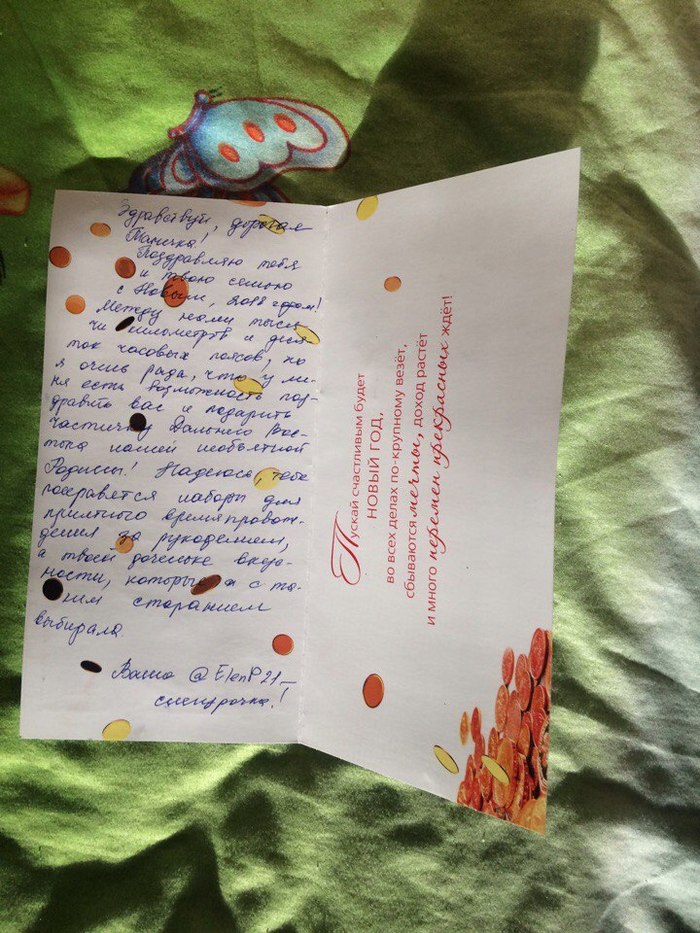 Здравствуй, дорогая
Танечка!
Поздравляю тебя
и твою семью
с Новым, 2018 годом!
Между нами тыся-
чи километров и деся-
ток часовых поясов, но
я очень рада, что у ме-
ня есть возможность поз-
дравить вас и подарить
частичку Дальнего Вос-
тока нашей необъятной
Родины! Надеюсь, тебе
понравятся наборы для
приятного времяпровож-
дения за рукоделием,
а твоей доченьке вкус-
ности, которые я с та-
ким старанием
выбирала.
Ваша @ElenP21 –
снегурочка!
Пускай счастливым будет
НОВЫЙ ГОД,
во всех делах по-крупному везёт,
сбываются мечты, доход растёт
и много перемен прекрасных ждёт!